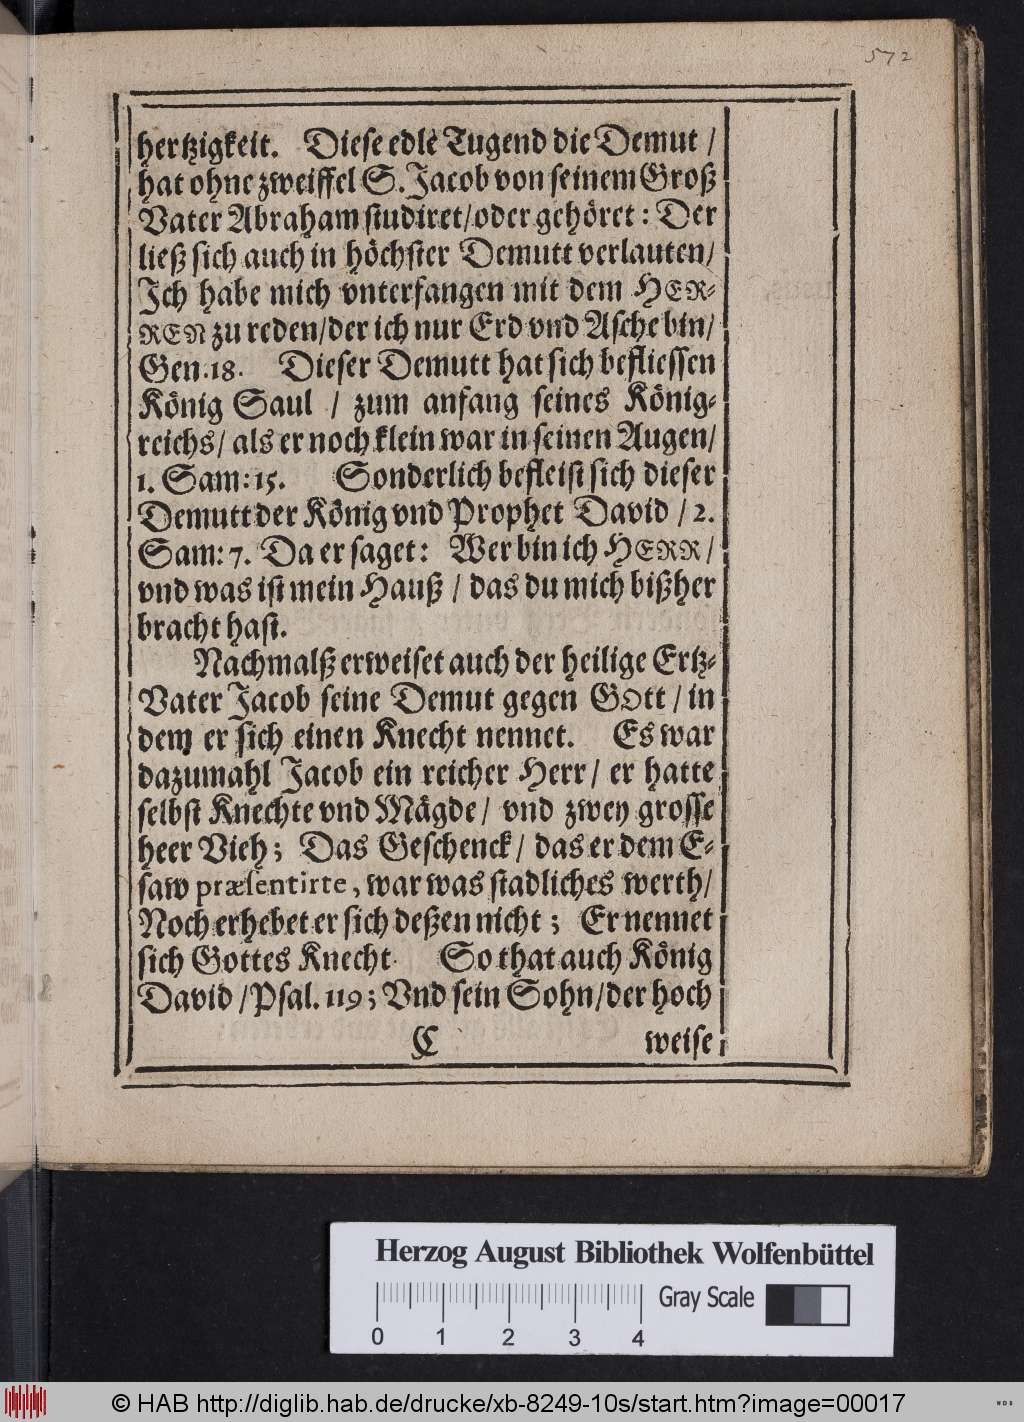 572
hertzigkeit. Diese edle Tugend die Demut /
hat ohne zweiffel S. Jacob von seinem Groß
Vater Abraham studiret/oder gehöret: Der
ließ sich auch in höchster Demutt verlauten/
Ich habe mich vnterfangen mit dem HER-
REN zu reden/der ich nur Erd vnd Asche bin/
Gen.18. Dieser Demutt hat sich befliessen
König Saul / zum anfang seines König-
reichs/ als er noch klein war in seinen Augen/
1. Sam: 15. Sonderlich befleist sich dieser
Demutt der König vnd Prophet David / 2.
Sam: 7. Da er saget: Wer bin ich HERR/
vnd was ist mein Hauß / das du mich bißher
bracht hast.
Nachmalß erweiset auch der heilige Ertz-
Vater Jacob seine Demut gegen GOtt / in
dem er sich einen Knecht nennet. Es war
dazumahl Jacob ein reicher Herr/ er hatte
selbst Knechte vnd Mägde/ vnd zwey grosse
heer Vieh; Das Geschenck/ das er dem E-
saw præsentirte, war was stadliches werth/
Noch erhebet er sich deßen nicht; Er nennet
sich Gottes Knecht. So that auch König
David /Psal. 119; Vnd sein Sohn/der hoch
C weise
Herzog August Bibliothek Wolfenbüttel
Gray Scale
0 1 2 3 4
© HAB http://diglib.hab.de/drucke/xb-8249-10s/start.htm?image=00017